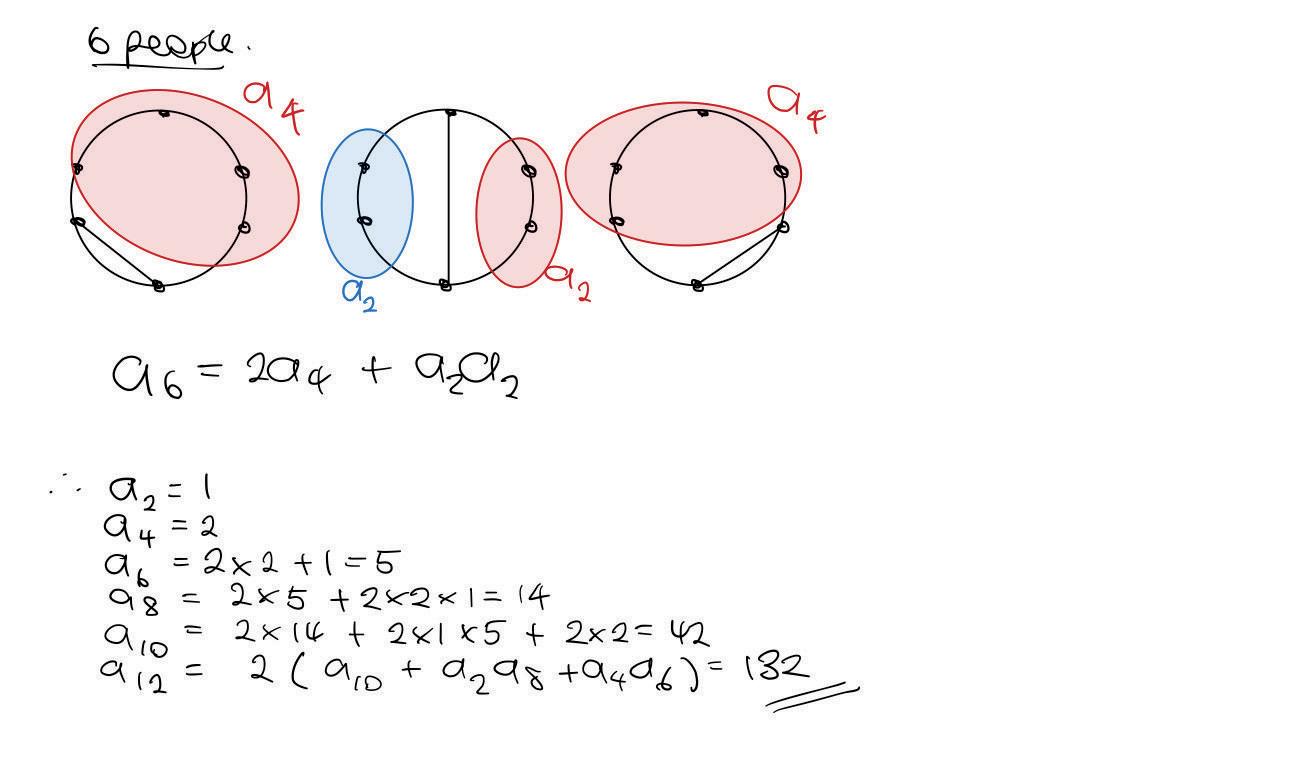 6 people.
a₄ a₄
a₂ a₂
a₆ = 2a₄ + a₂a₂
∴ a₂ = 1
a₄ = 2
a₆ = 2×2 + 1 = 5
a₈ = 2×5 + 2×2×1 = 14
a₁₀ = 2×14 + 2×1×5 + 2×2 = 42
a₁₂ = 2(a₁₀ + a₂a₈ + a₄a₆) = 132